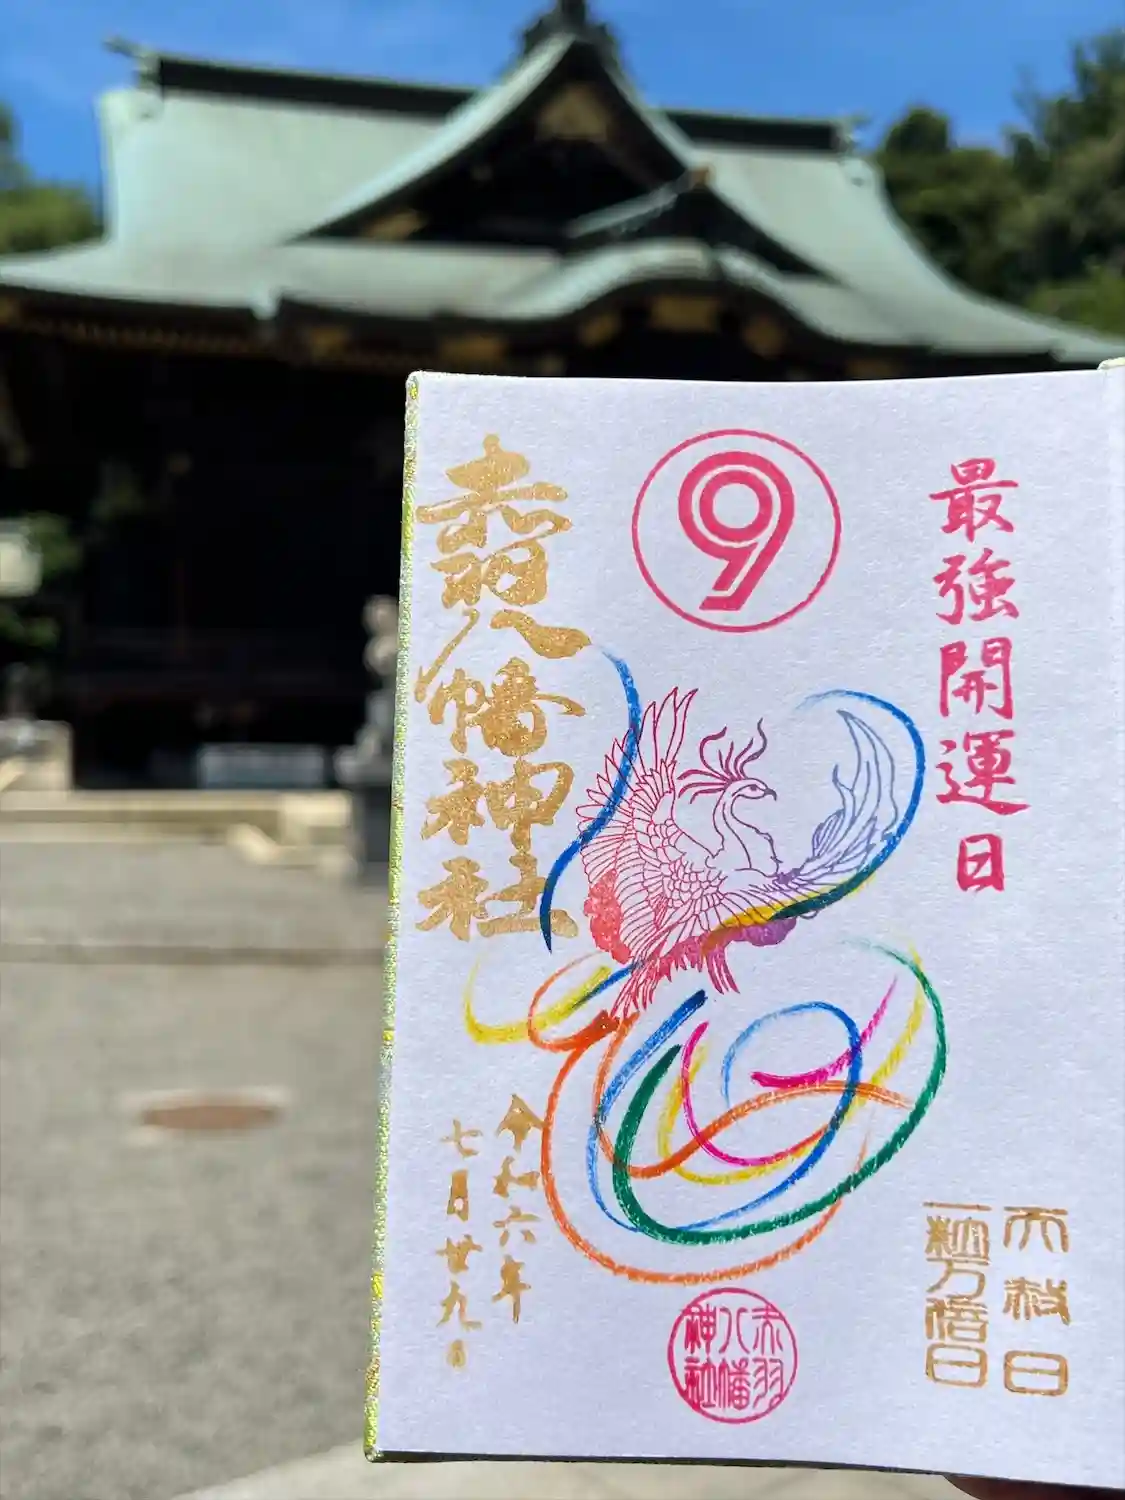 最強開運日
⑨
赤羽八幡神社
令和六年
七月廿九日
天赦日
一粒万倍日
赤羽
八幡
神社